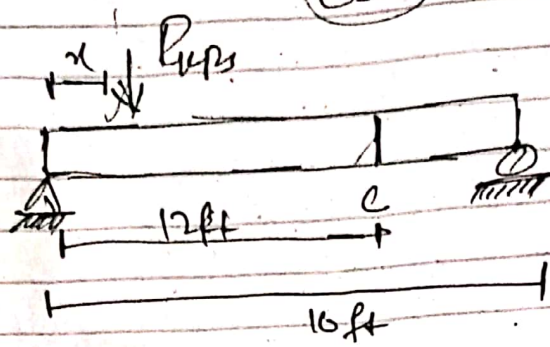 x
P kips
C
12ft
16 ft